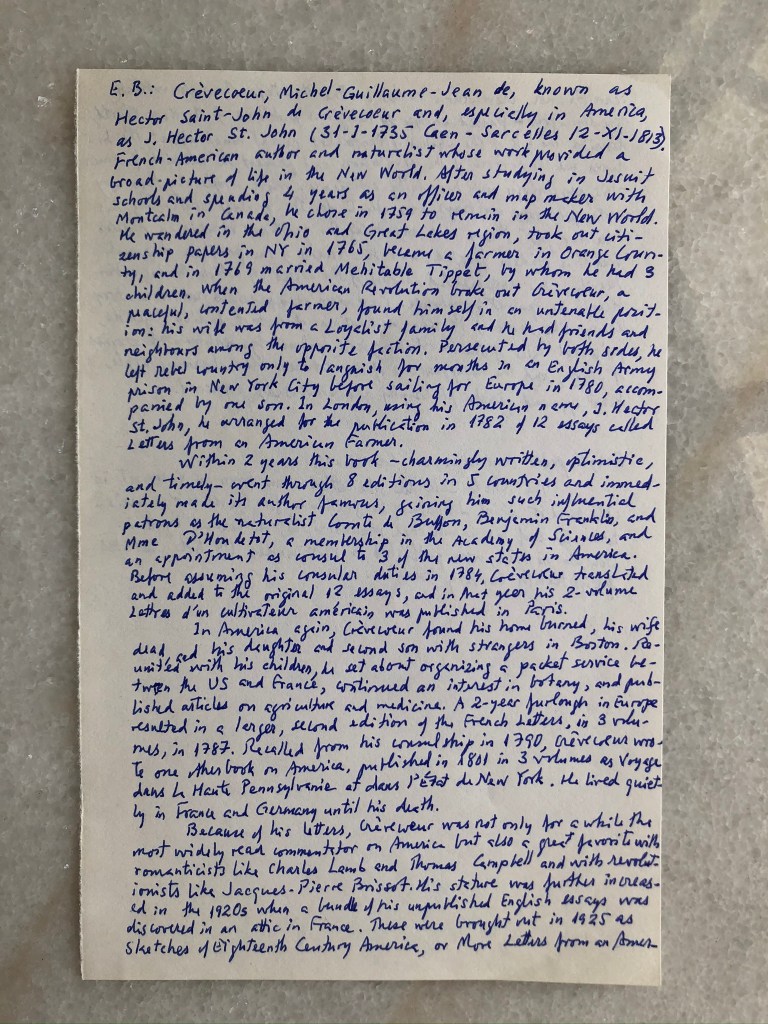 E. B.: Crèvecoeur, Michel-Guillaume-Jean de, known as
Hector Saint-John de Crèvecoeur and, especially in America,
as J. Hector St. John (31-I-1735 Caen - Sarcelles 12-XI-1813).
French-American author and naturalist whose work provided a
broad picture of life in the New World. After studying in Jesuit
schools and spending 4 years as an officer and map maker with
Montcalm in Canada, he chose in 1759 to remain in the New World.
He wandered in the Ohio and Great Lakes region, took out citi-
zenship papers in NY in 1765, became a farmer in Orange Coun-
ty, and in 1769 married Mehitable Tippet, by whom he had 3
children. When the American Revolution broke out Crèvecoeur, a
peaceful, contented farmer, found himself in an untenable posit-
ion: his wife was from a Loyalist family and he had friends and
neighbours among the opposite faction. Persecuted by both sides, he
left rebel country only to languish for months in an English Army
prison in New York City before sailing for Europe in 1780, accom-
panied by one son. In London, using his American name, J. Hector
St. John, he arranged for the publication in 1782 of 12 essays called
Letters from an American Farmer.
Within 2 years this book -charmingly written, optimistic,
and timely- went through 8 editions in 5 countries and immed-
iately made its author famous, gaining him such influential
patrons as the naturalist Comte de Buffon, Benjamin Franklin, and
Mme D'Houdetot, a membership in the Academy of Sciences, and
an appointment as consul to 3 of the new states in America.
Before assuming his consular duties in 1784, Crèvecoeur translated
and added to the original 12 essays, and in that year his 2-volume
Lettres d'un cultivateur américain was published in Paris.
In America again, Crèvecoeur found his home burned, his wife
dead, and his daughter and second son with strangers in Boston. Re-
united with his children, he set about organizing a packet service be-
tween the US and France, continued an interest in botany, and pub-
lished articles on agriculture and medicine. A 2-year furlough in Europe
resulted in a larger, second edition of the French Letters, in 3 volu-
mes, in 1787. Recalled from his consulship in 1790, Crèvecoeur wro-
te one other book on America, published in 1801 in 3 volumes as Voyage
dans la Haute Pennsylvanie et dans l'État de New York. He lived quiet-
ly in France and Germany until his death.
Because of his letters, Crèvecoeur was not only for a while the
most widely read commentator on America but also a great favorite with
romanticists like Charles Lamb and Thomas Campbell and with revolut-
ionists like Jacques-Pierre Brissot. His stature was further increas-
ed in the 1920s when a bundle of his unpublished English essays was
discovered in an attic in France. These were brought out in 1925 as
Sketches of Eighteenth Century America, or More Letters from an Amer-